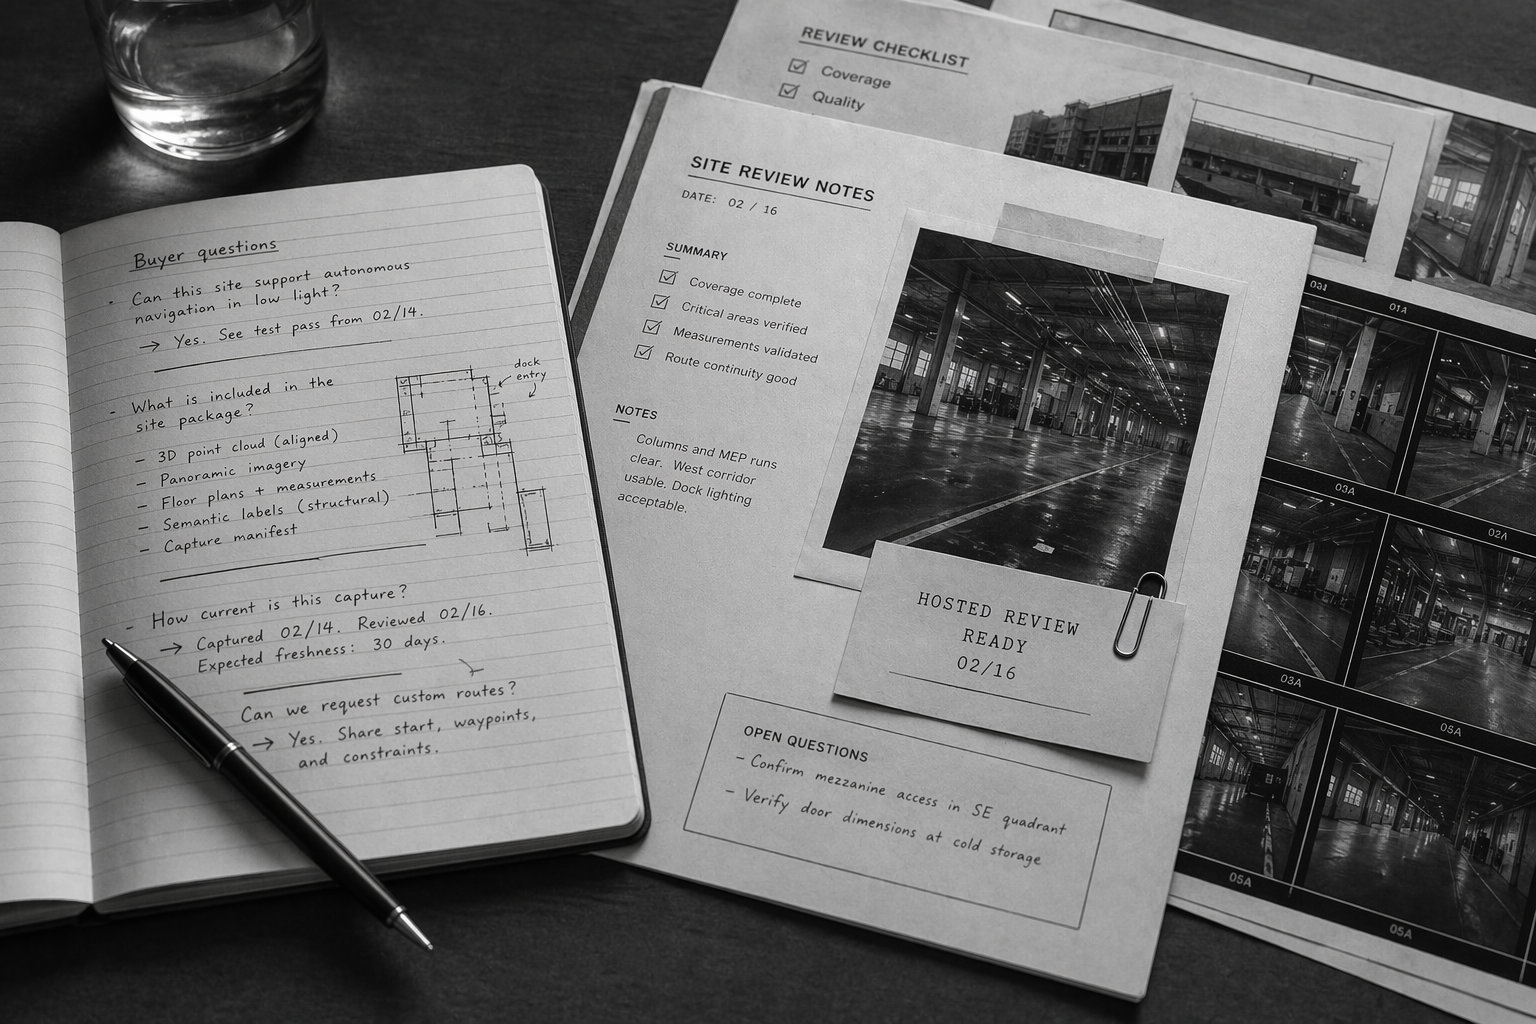 Buyer questions
- Can this site support autonomous
navigation in low light?
→ Yes. See test pass from 02/14.
- What is included in the
site package?
- 3D point cloud (aligned)
- Panoramic imagery
- Floor plans + measurements
- Semantic labels (structural)
- Capture manifest
dock
entry
- How current is this capture?
→ Captured 02/14. Reviewed 02/16.
Expected freshness: 30 days.
Can we request custom routes?
→ Yes. Share start, waypoints,
and constraints.
REVIEW CHECKLIST
☑ Coverage
☑ Quality
SITE REVIEW NOTES
DATE: 02 / 16
SUMMARY
☑ Coverage complete
☑ Critical areas verified
☑ Measurements validated
☑ Route continuity good
NOTES
Columns and MEP runs
clear. West corridor
usable. Dock lighting
acceptable.
HOSTED REVIEW
READY
02/16
OPEN QUESTIONS
- Confirm mezzanine access in SE quadrant
- Verify door dimensions at cold storage
01A
03A
02A
03A
05A
05A
05A